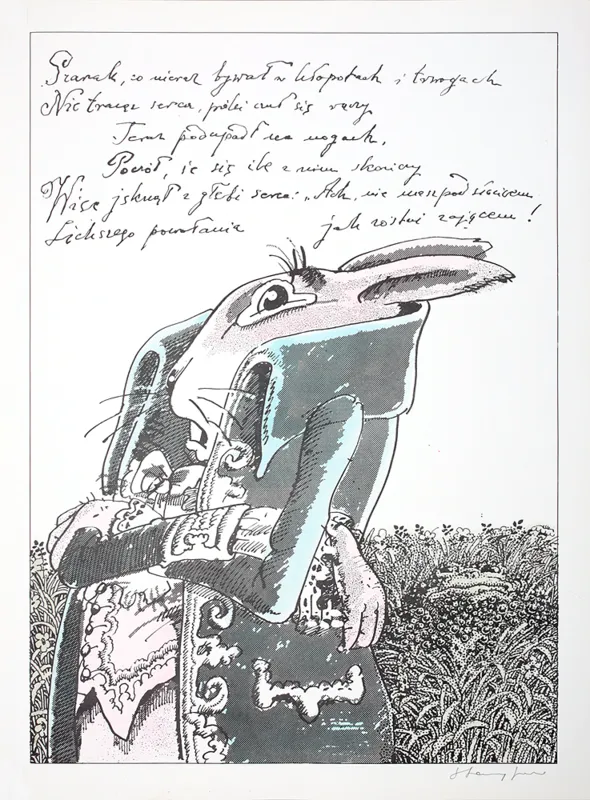 Szarak, co nieraz bywał w kłopotach i trwogach
Nie tracąc serca, póki czuł się rączy
Teraz podupadł na nogach.
Poczuł, że się źle z nim skończy
Więc jęknął z głębi serca: „Ach, nie masz pod słońcem
Lichszego powołania jak zostać zającem!